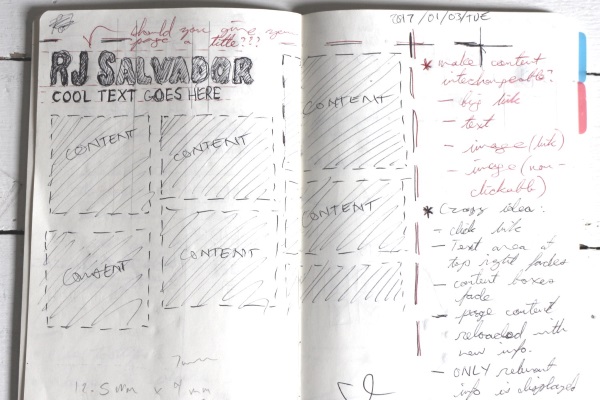 Should you give your
page a title???
RJ SALVADOR
COOL TEXT GOES HERE
CONTENT
CONTENT
CONTENT
CONTENT
2017/01/03/TUE
CONTENT
CONTENT
* make content
intechangeable?
- big link
- text
- image (link)
- image (non-
clickable)
* Crazy idea:
- click link
- Text area at
top right fades
- content boxes
fade
- page content
reloaded with
new info.
- ONLY relevant
info is displayed